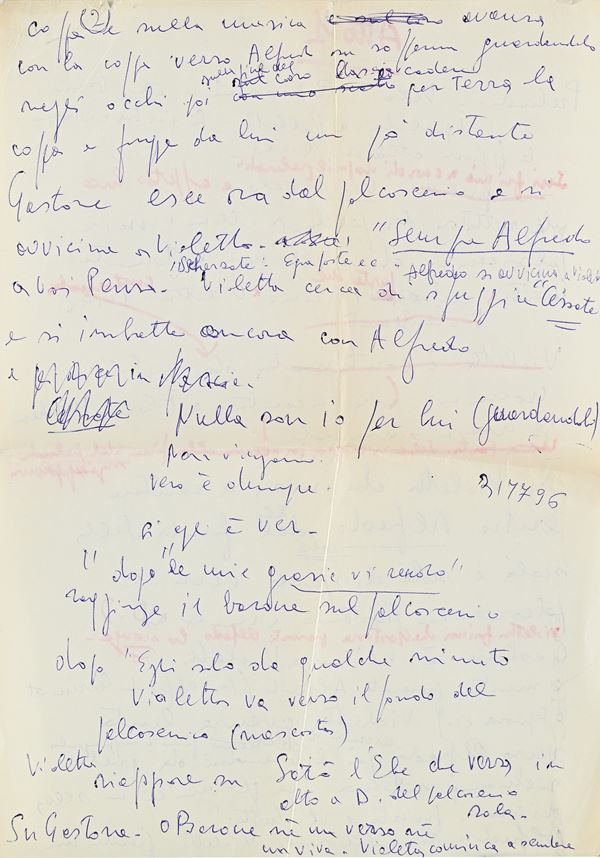 coppa (2) e sulla musica avanza
con la coppa verso Alfredo su so guardandolo
negli occhi poi sulla fine del coro lascia cadere per terra la
coppa e fugge da lui un pò distante
Gastone esce ora dal palcoscenico e si
avvicina a Violetta - "Sempre Alfredo
a voi Pensa - Scherzate: Egra foste e è "Alfredo si avvicina a Violetta
Violetta cerca di sfuggire "Cessate
e si imbatte ancora con Alfredo
e
Nulla son io per lui (guardandolo)
Non v'inganna
Vero è dunque -
317796
Sì egli è ver -
"dopo "le mie grazie vi rendo"
raggiunge il barone sul palcoscenico
dopo "Egli solo da qualche minuto
Violetta va verso il fondo del
palcoscenico (nascosta)
Violetta
riappare su Sarò l'Ebe che versa, in
alto a D. del palcoscenico
sola -
Su Gastone - O Barone nè un verso nè
un viva - Violetta comincia a scendere